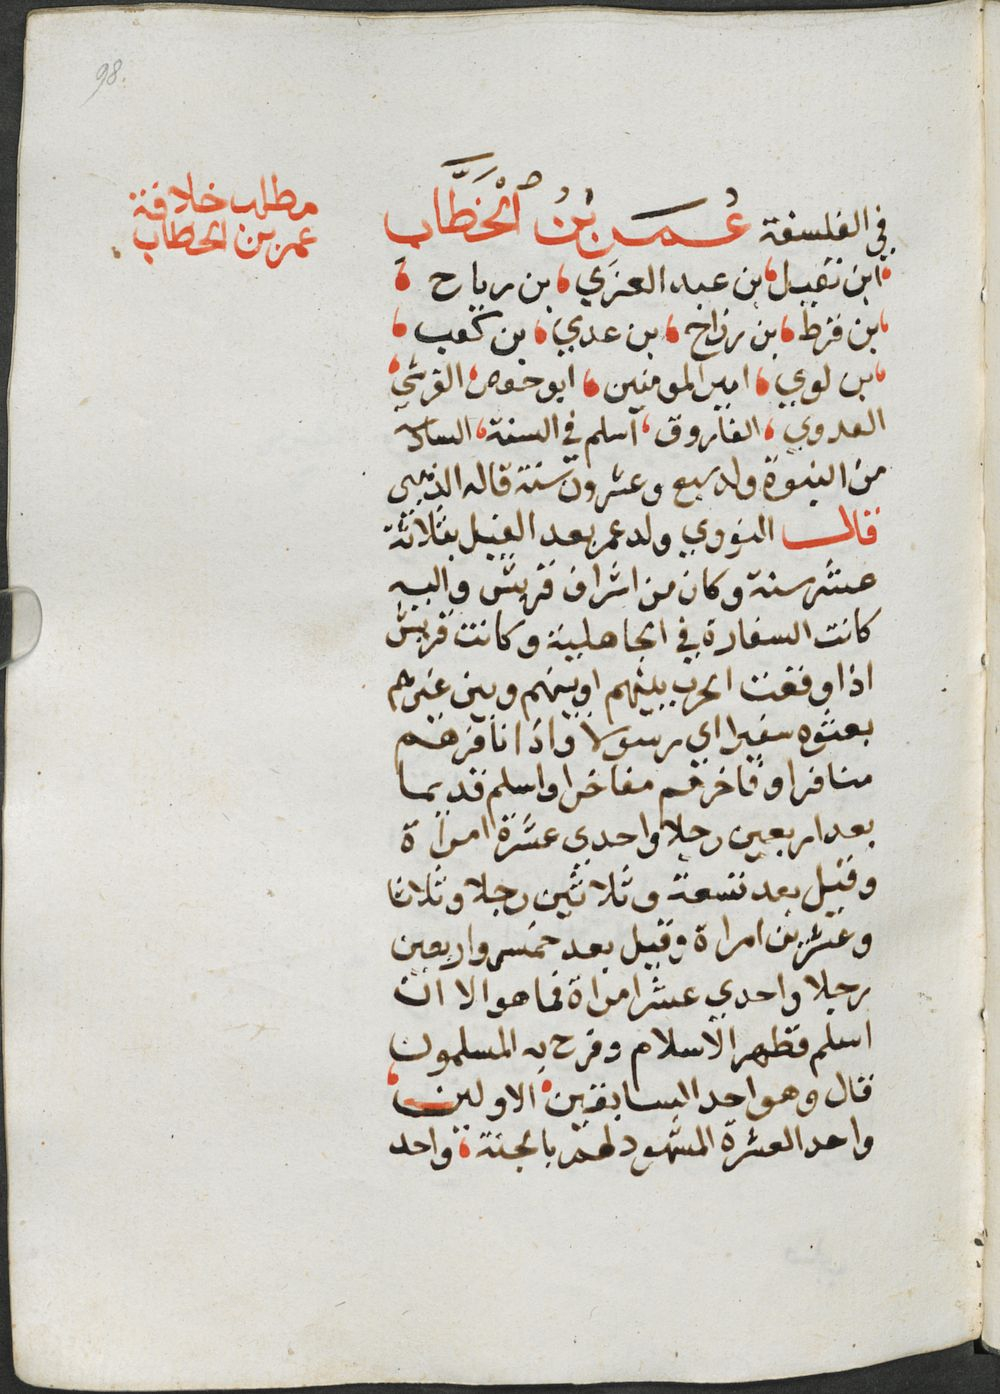 98.
مطلب خلافة
عمر بن الخطاب
في الفلسفة عُمَر بْنُ الْخَطَّاب
ابن نفيل بن عبد العزي بن رياح
بن قرط بن رزاح بن عدي بن كعب
بن لوي امير المومنين ابو حفص القرشي
العدوي الفاروق اسلم في السنة السادسة
من النبوة وله سبع وعشرون سنة قاله الذهبي
قال النووي ولد عمر بعد الفيل بثلاثة
عشر سنة وكان من اشراف قريش واليه
كانت السفارة في الجاهلية وكانت قريش
اذا وقعت الحرب بينهم او بينهم وبين غيرهم
بعثوه سفيرا اي رسولا واذا نافرهم
منافرا وفاخرهم مفاخرا واسلم قديما
بعد اربعين رجلا واحدى عشرة امراة
وقيل بعد تسعة وثلاثين رجلا وثلاثا
وعشرين امراة وقيل بعد خمس واربعين
رجلا واحدي عشر امراة فما هو الا ان
اسلم فظهر الاسلام وفرح به المسلمون
قال وهو احد السابقين الاولين
واحد العشرة المشهود لهم بالجنة واحد